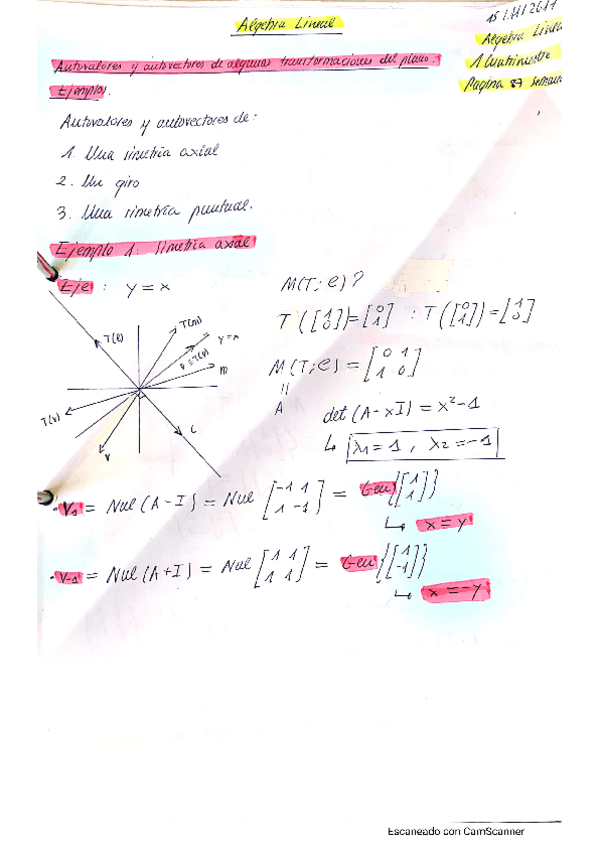 Algebra Lineal
Algebra Linea
1 Cuatrimestre
Pagina 87
Autovalores y autovectores de algunas transformaciones del plano.
Ejemplos.
Autovalores y autovectores de:
1. Una simetría axial
2. Un giro
3. Una simetría puntual.
Ejemplo 1: Simetría axial
Eje : y = x
M(T; e)?
T([1 0]) = [0 1] : T([0 1]) = [1 0]
M(T; e) = [0 1
1 0]
=
A
det (A - xI) = x² - 1
↳ λ1 = 1 , λ2 = -1
T(m)
y = x
T(e)
m
T(v)
v
· V1 = Nul (A - I) = Nul [-1 1
1 -1] = Gen {[1 1]}
↳ x = y
· V-1 = Nul (A + I) = Nul [1 1
1 1] = Gen {[1 -1]}
↳ x = -y
Escaneado con CamScanner